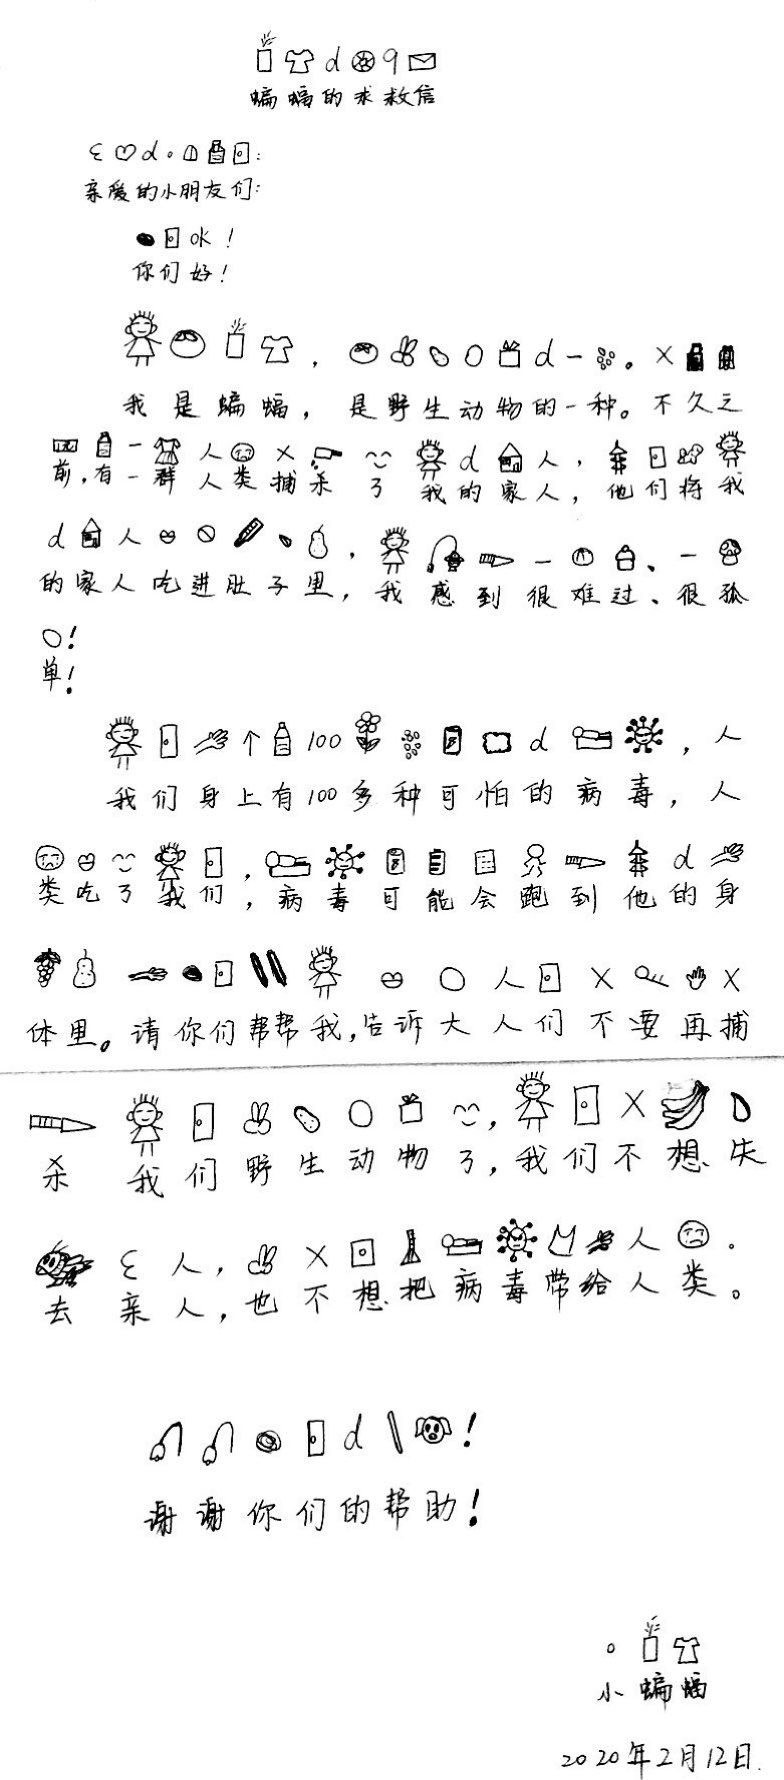 蝙蝠的求救信
亲爱的小朋友们:
你们好!
我是蝙蝠,是野生动物的一种。不久之
前,有一群人类捕杀了我的家人,他们将我
的家人吃进肚子里,我感到很难过、很孤
单!
100
我们身上有100多种可怕的病毒,人
类吃了我们,病毒可能会跑到他的身
体里。请你们帮帮我,告诉大人们不要再捕
杀我们野生动物了,我们不想失
去亲人,也不想把病毒带给人类。
谢谢你们的帮助!
小蝙蝠
2020年2月12日.